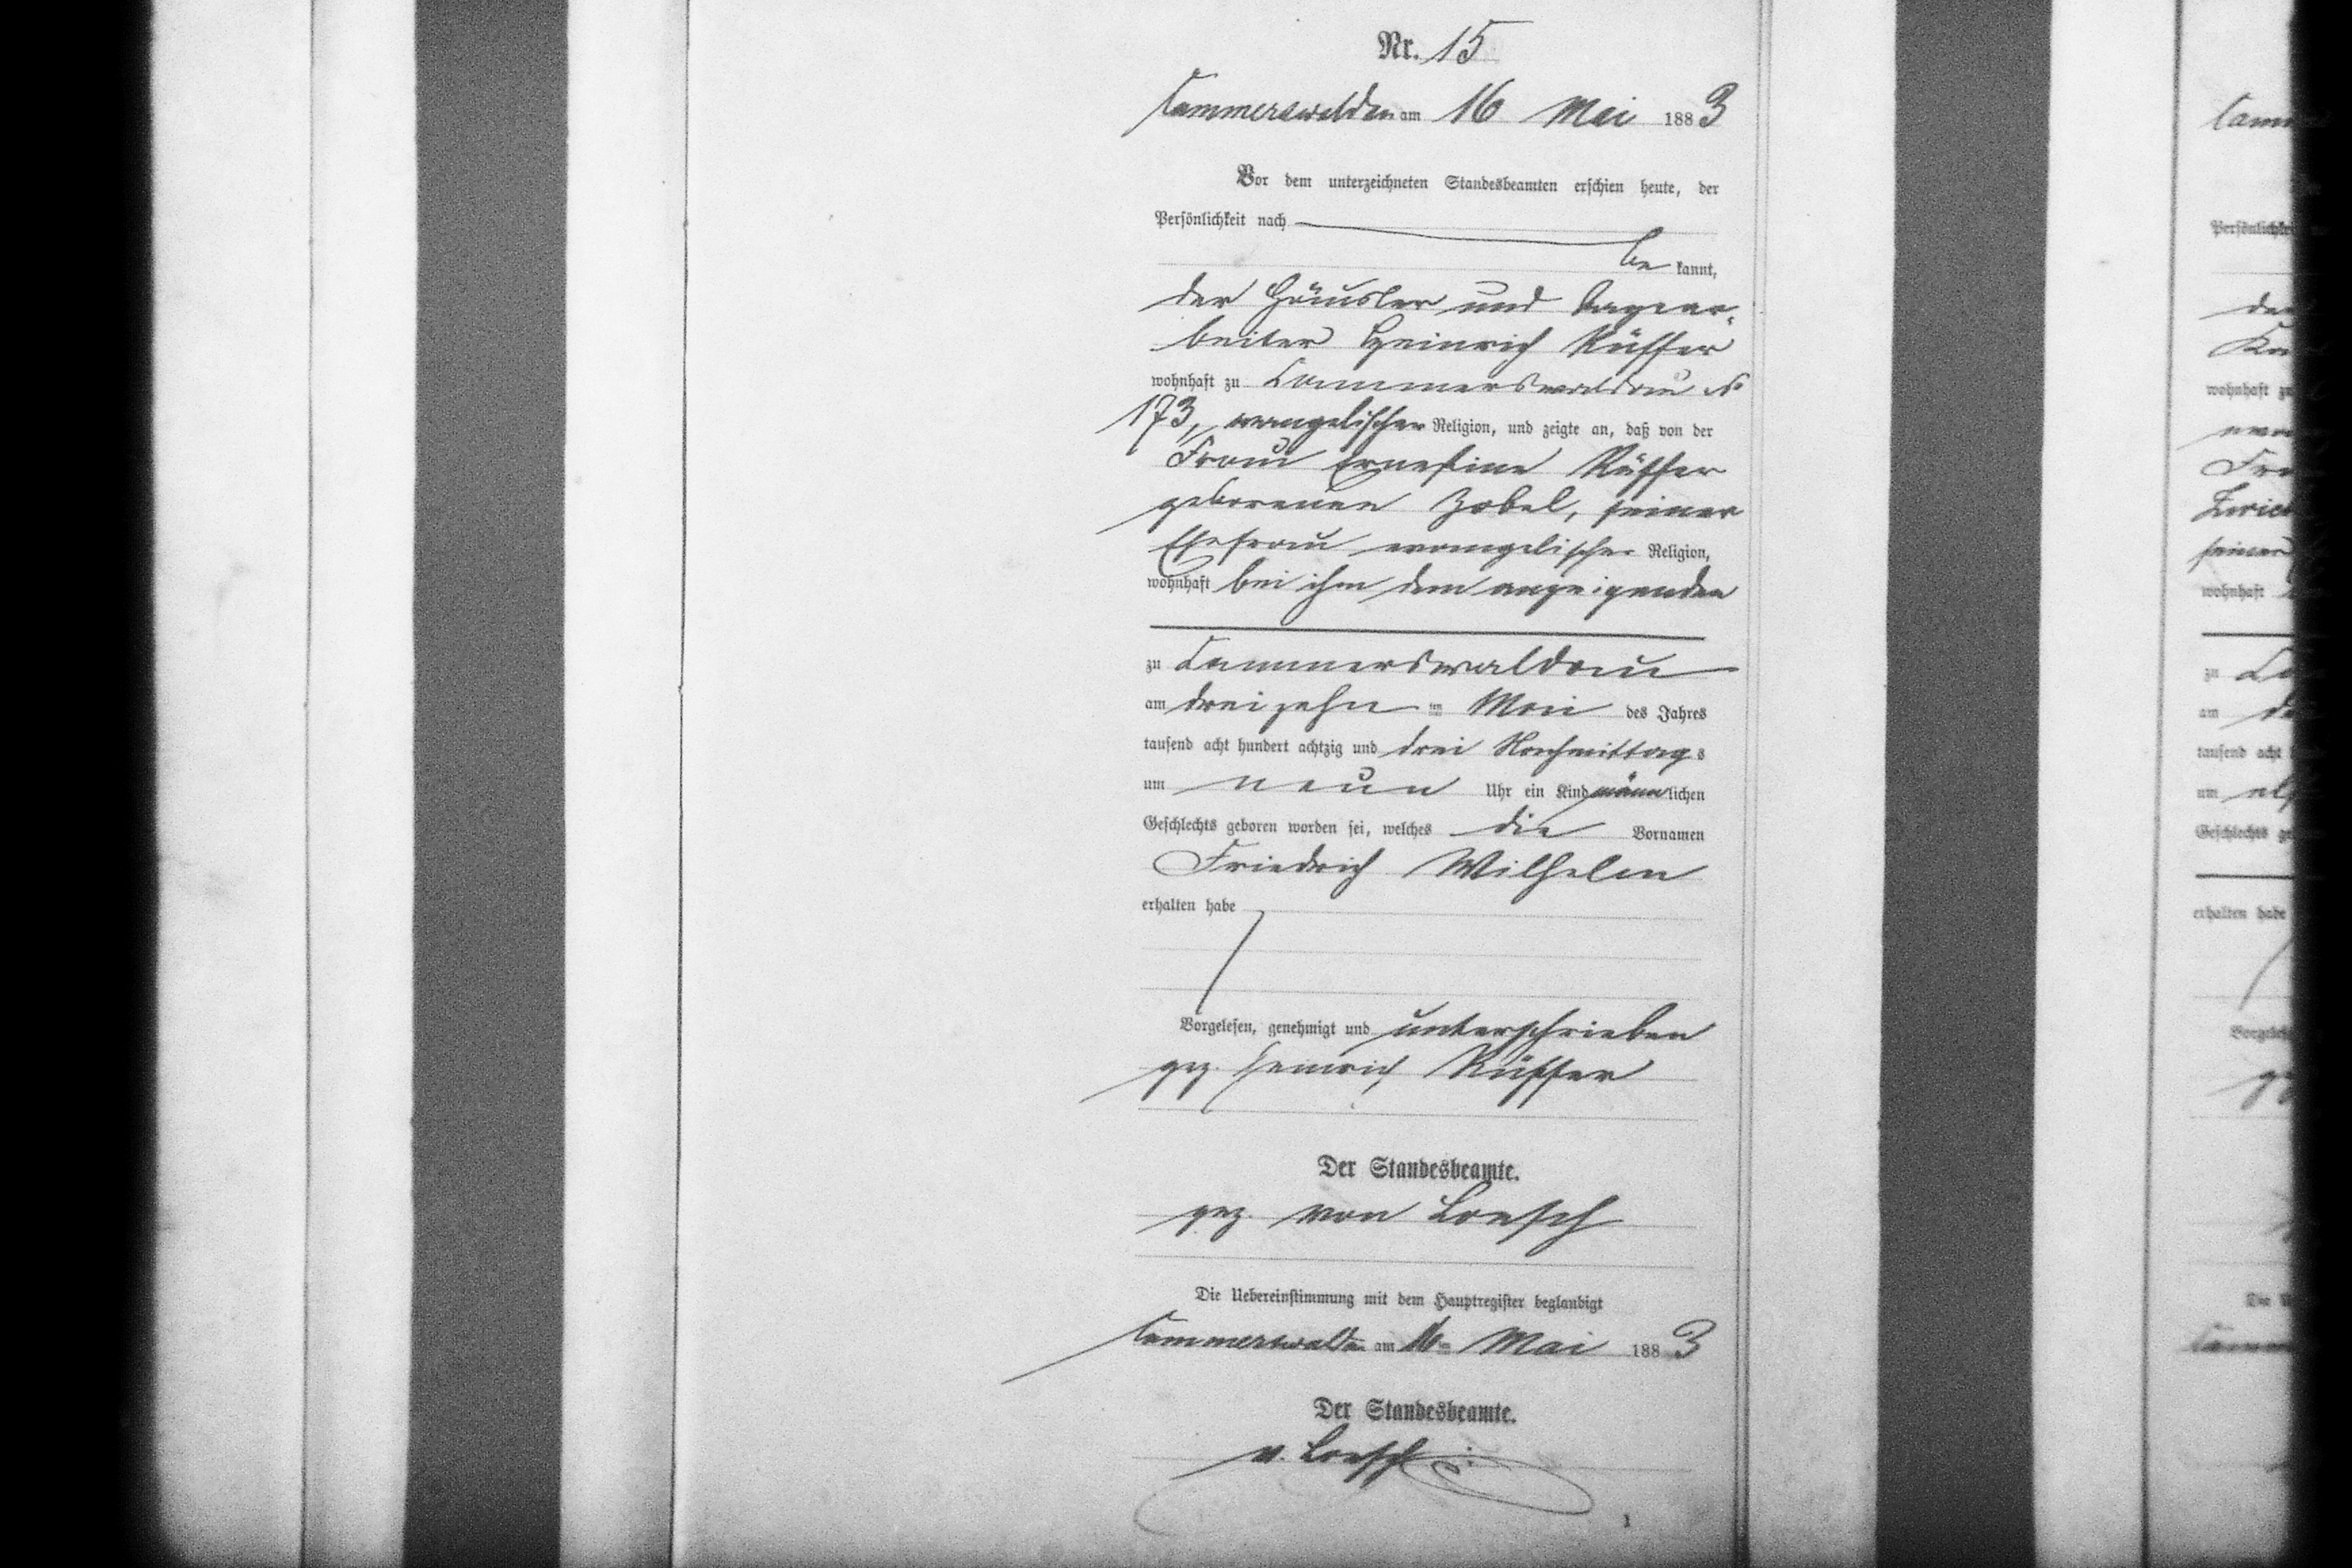 Nr. 15
Cammerswaldau am 16 Mai 1883
Vor dem unterzeichneten Standesbeamten erschien heute, der
Persönlichkeit nach
be kannt,
der Häusler und Tagear-
beiter Heinrich Rüffer
wohnhaft zu Cammerswaldau No
173, evangelischer Religion, und zeigte an, daß von der
Frau Ernestine Rüffer
geborenen Zobel, seiner
Ehefrau evangelischer Religion,
wohnhaft bei ihm dem anzeigenden
zu Cammerswaldau
am dreizehn ten Mai des Jahres
tausend acht hundert achtzig und drei Nachmittags
um neun Uhr ein Kind männlichen
Geschlechts geboren worden sei, welches die Vornamen
Friedrich Wilhelm
erhalten habe
Vorgelesen, genehmigt und unterschrieben
gez. Heinrich Rüffer
Der Standesbeamte.
gez. von Loesch
Die Uebereinstimmung mit dem Hauptregister beglaubigt
Cammerswaldau am 16ten Mai 1883
Der Standesbeamte.
v. Loesch